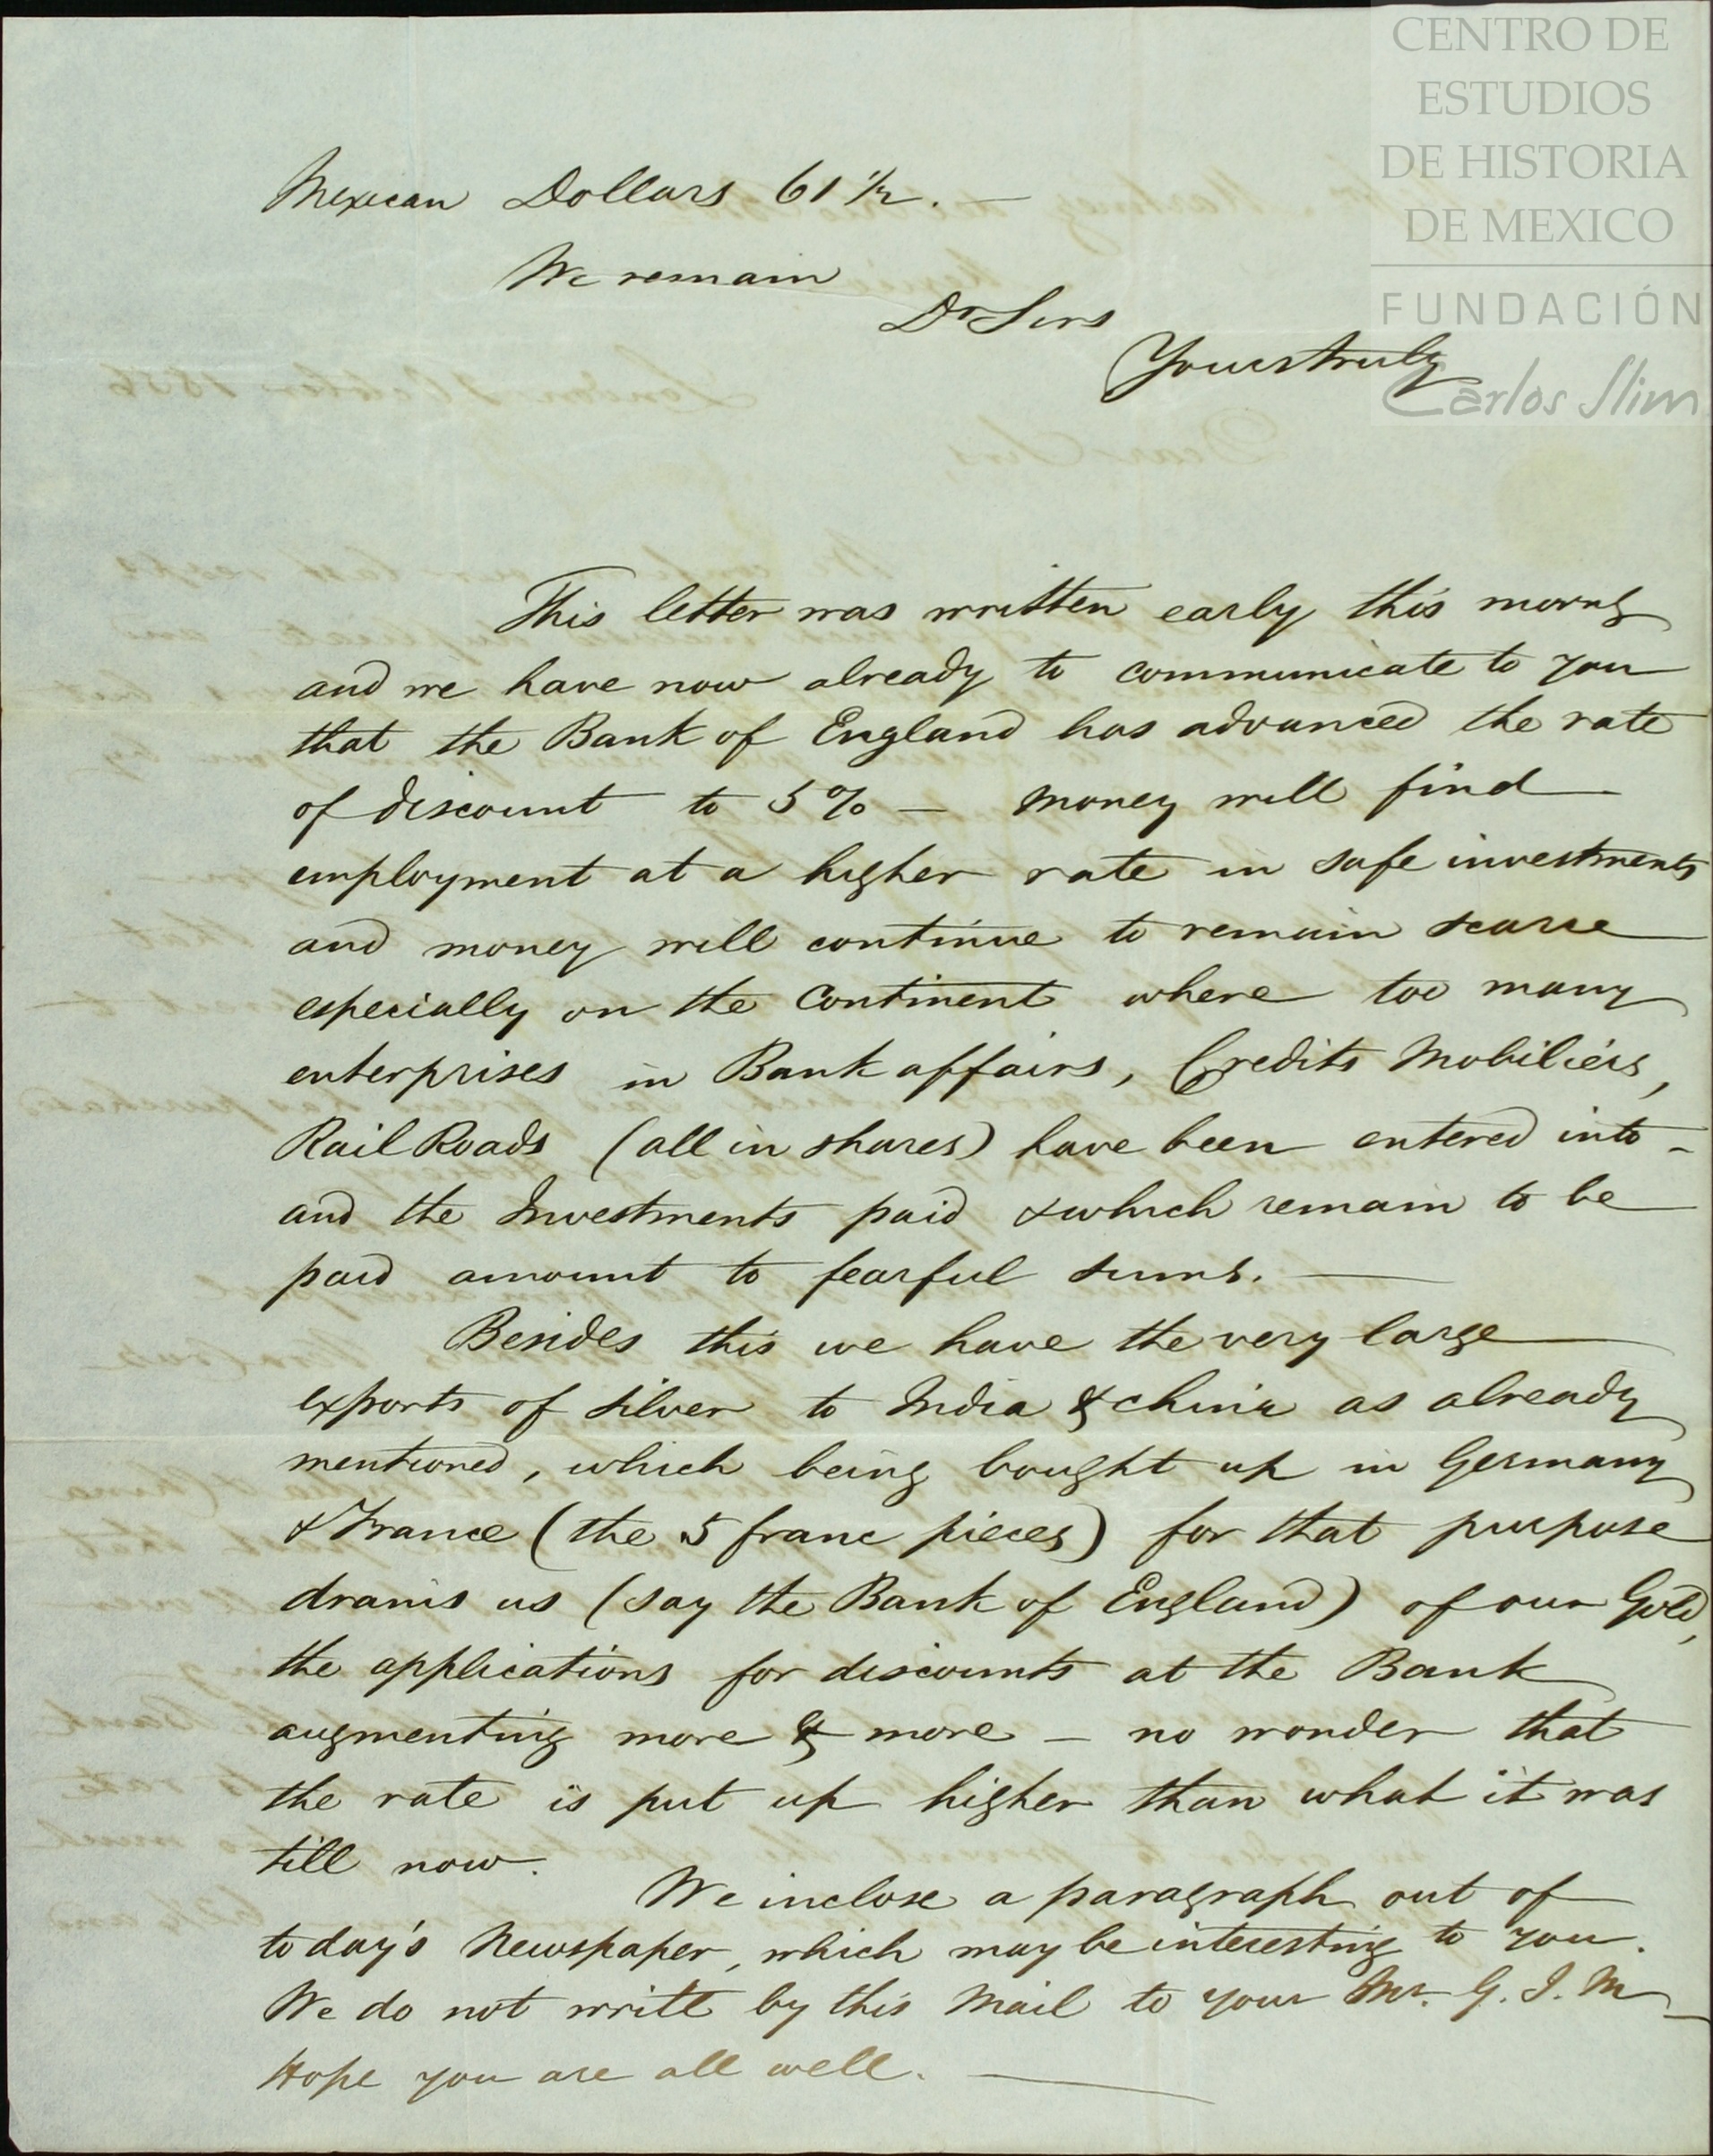 CENTRO DE
ESTUDIOS
DE HISTORIA
DE MEXICO
FUNDACIÓN
Carlos Slim
Mexican Dollars 61 1/2. —
We remain
Dr Sirs
Yours truly
This letter was written early this morng
and we have now already to communicate to you
that the Bank of England has advanced the rate
of discount to 5% — money will find
employment at a higher rate in safe investments
and money will continue to remain scarce
especially on the Continent where too many
enterprises in Bank affairs, Credits Mobiliérs,
Rail Roads (all in shares) have been entered into -
and the Investments paid & which remain to be
paid amount to fearful sums. —
Besides this we have the very large
exports of silver to India & China as already
mentioned, which being bought up in Germany
& France (the 5 franc pieces) for that purpose
drains us (say the Bank of England) of our Gold,
the applications for discounts at the Bank
augmenting more & more — no wonder that
the rate is put up higher than what it was
till now.
We inclose a paragraph out of
to day's Newspaper, which may be interesting to you.
We do not write by this Mail to your Mr. G. J. M
Hope you are all well. —
London 1 October 1856
Dear Sirs,